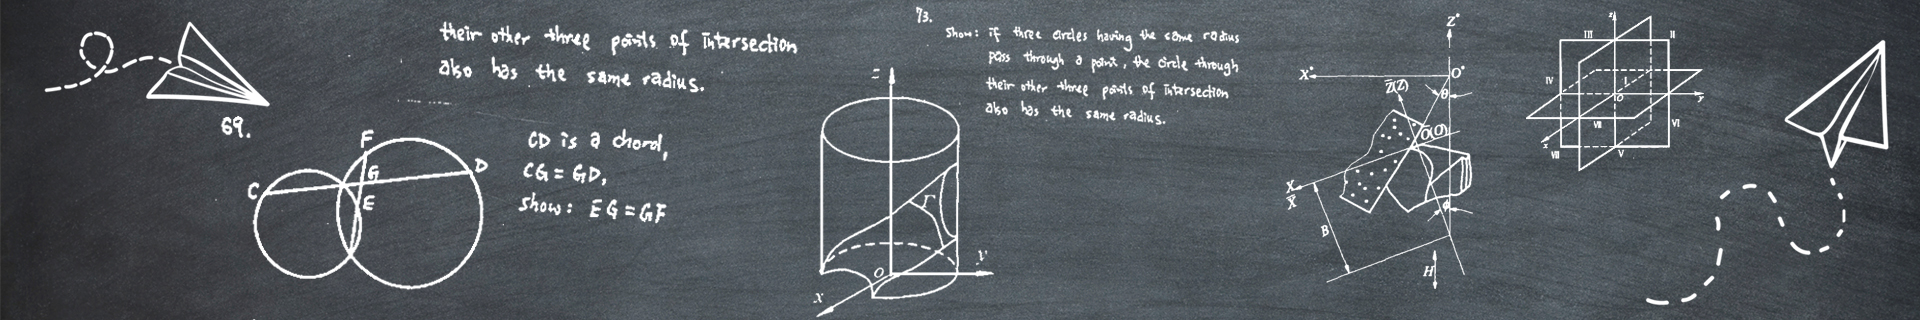 their other three points of intersection
also has the same radius.
69.
F
C
G
D
E
CD is a chord,
CG = GD,
show: EG = GF
z
Γ
O
y
x
73.
Show: if three circles having the same radius
pass through a point, the circle through
their other three points of intersection
also has the same radius.
Z°
X°
O°
θ
Z̄(Z)
Ō(O)
X
X̄
B
ϕ
H
z
III
II
IV
I
O
y
VII
VI
x
VIII
V